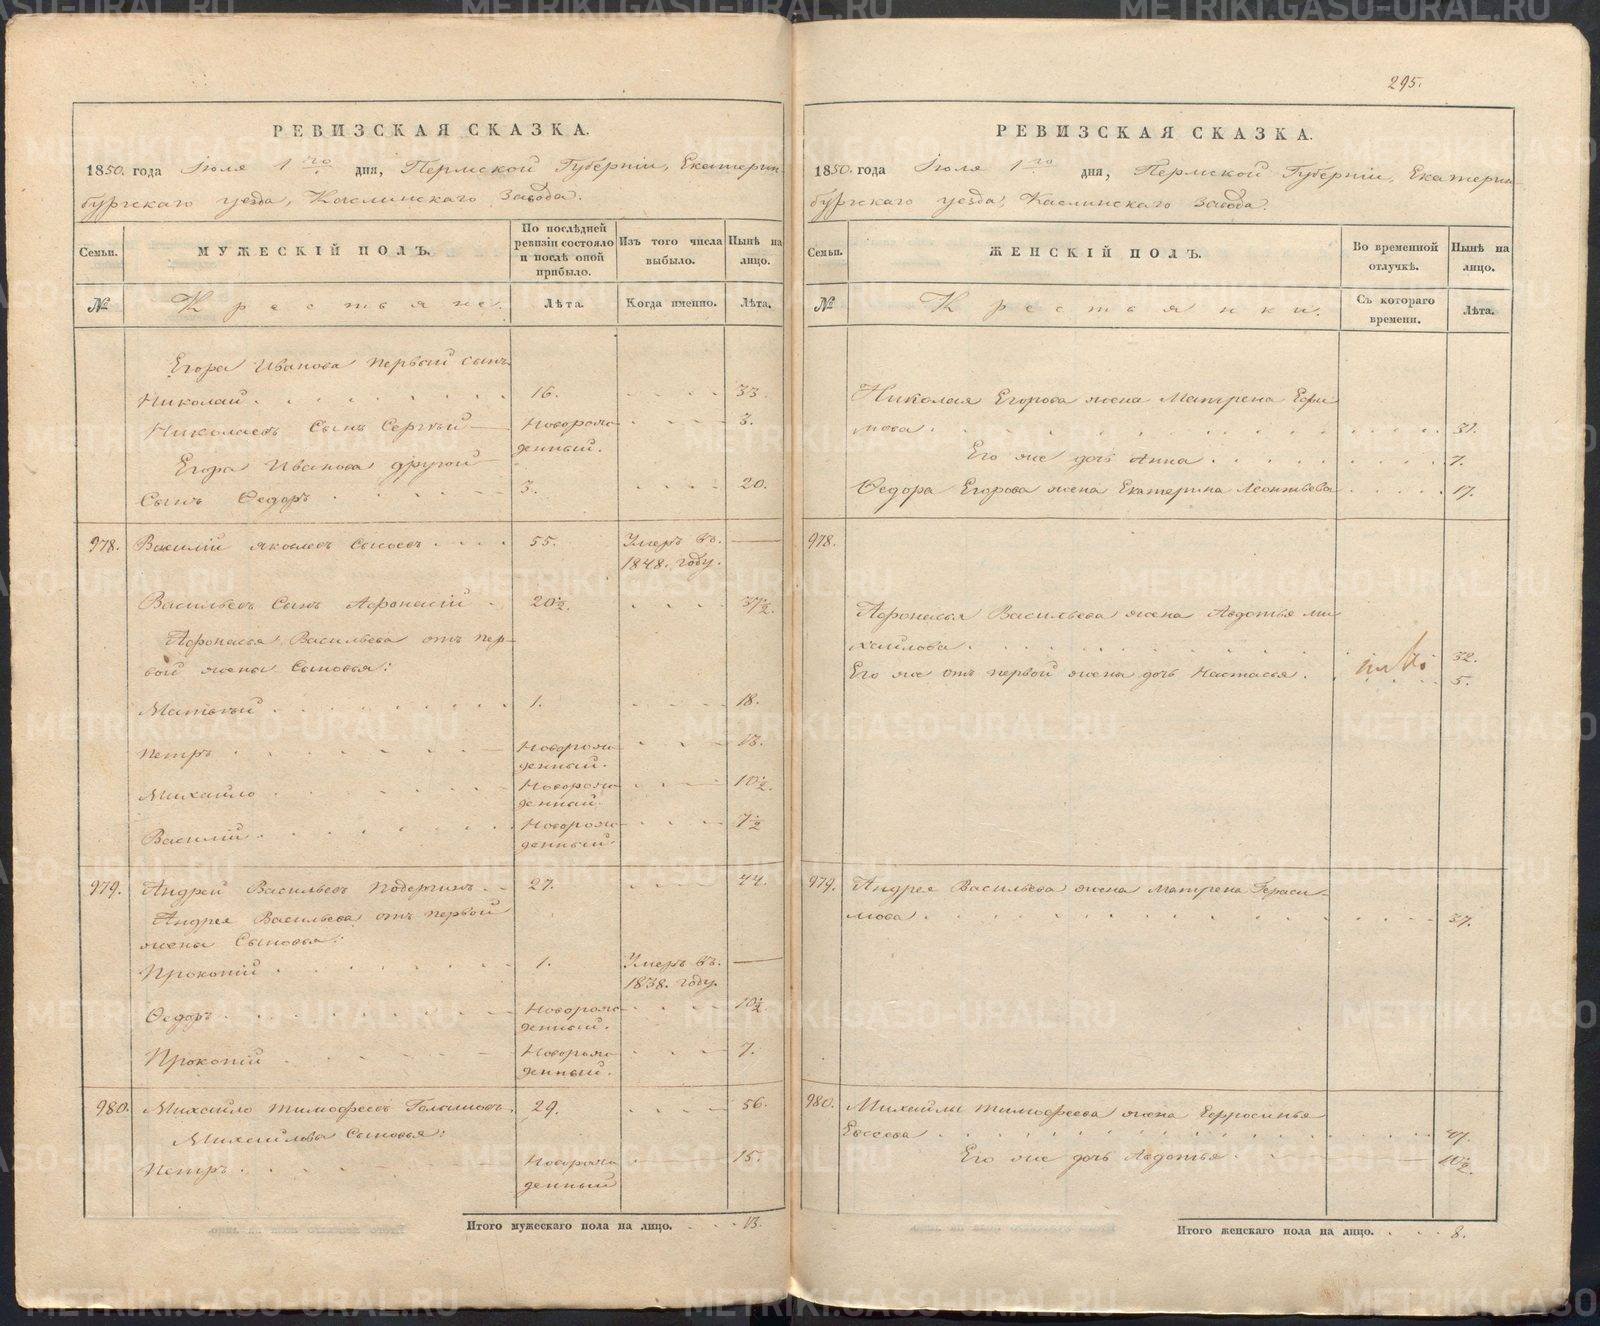 РЕВИЗСКАЯ СКАЗКА.
1850. года Іюля 1го дня, Пермской Губерніи, Екатерин-
бургскаго уезда, Каслинскаго Завода.
Семьи.
МУЖЕСКІЙ ПОЛЪ.
По послѣдней ревизіи состояло и послѣ оной прибыло.
Изъ того числа выбыло.
Нынѣ на лицо.
№ Крестьяне. Лѣта. Когда именно. Лѣта.
Егора Иванова первый сынъ
Николай. 16. 33.
Николаевъ Сынъ Сергѣй Новорож- 3.
денный.
Егора Иванова другой
Сынъ Ѳедоръ 3. 20.
978. Василій Яковлевъ 55. Умеръ въ
1848. году.
Васильевъ Сынъ Афонасій 20½. 37½.
Афонасья Васильева отъ пер-
вой жены Сыновья:
Матвѣй 1. 18.
Петръ Новорож- 13.
денный.
Михайло Новорож- 10½.
денный.
Василій Новорож- 7½
денный.
979. Андрей Васильевъ 27. 44.
Андрея Васильева отъ первой
жены Сыновья:
Прокопій 1. Умеръ въ
1838. году.
Ѳедоръ Новорож- 10½.
денный.
Прокопій Новорож- 7.
денный.
980. Михайло Тимофеевъ 29. 56.
Михайловы Сыновья:
Петръ. Новорож- 15.
денный
Итого мужескаго пола на лицо. 13.
295.
РЕВИЗСКАЯ СКАЗКА.
1850. года Іюля 1го дня, Пермской Губерніи, Екатерин-
бургскаго уезда, Каслинскаго Завода.
Семьи.
ЖЕНСКІЙ ПОЛЪ.
Во временной отлучкѣ.
Нынѣ на лицо.
№ Крестьянки. Съ котораго времени. Лѣта.
Николая Егорова жена Матрена Ефи
мова. 31.
Его же дочь Анна 7.
Ѳедора Егорова жена Екатерина Леонтьева 17.
978.
Афонасья Васильева жена Авдотья Ми
хайлова 32.
Его же отъ первой жены дочь Настасья. 5.
979. Андрея Васильева жена Матрена Гераси-
мова 37.
980. Михайлы Тимофеева жена Ефросинья
Евсеева 47.
Его же дочь Авдотья 10½.
Итого женскаго пола на лицо. 8.
METRIKI.GASO-URAL.RU